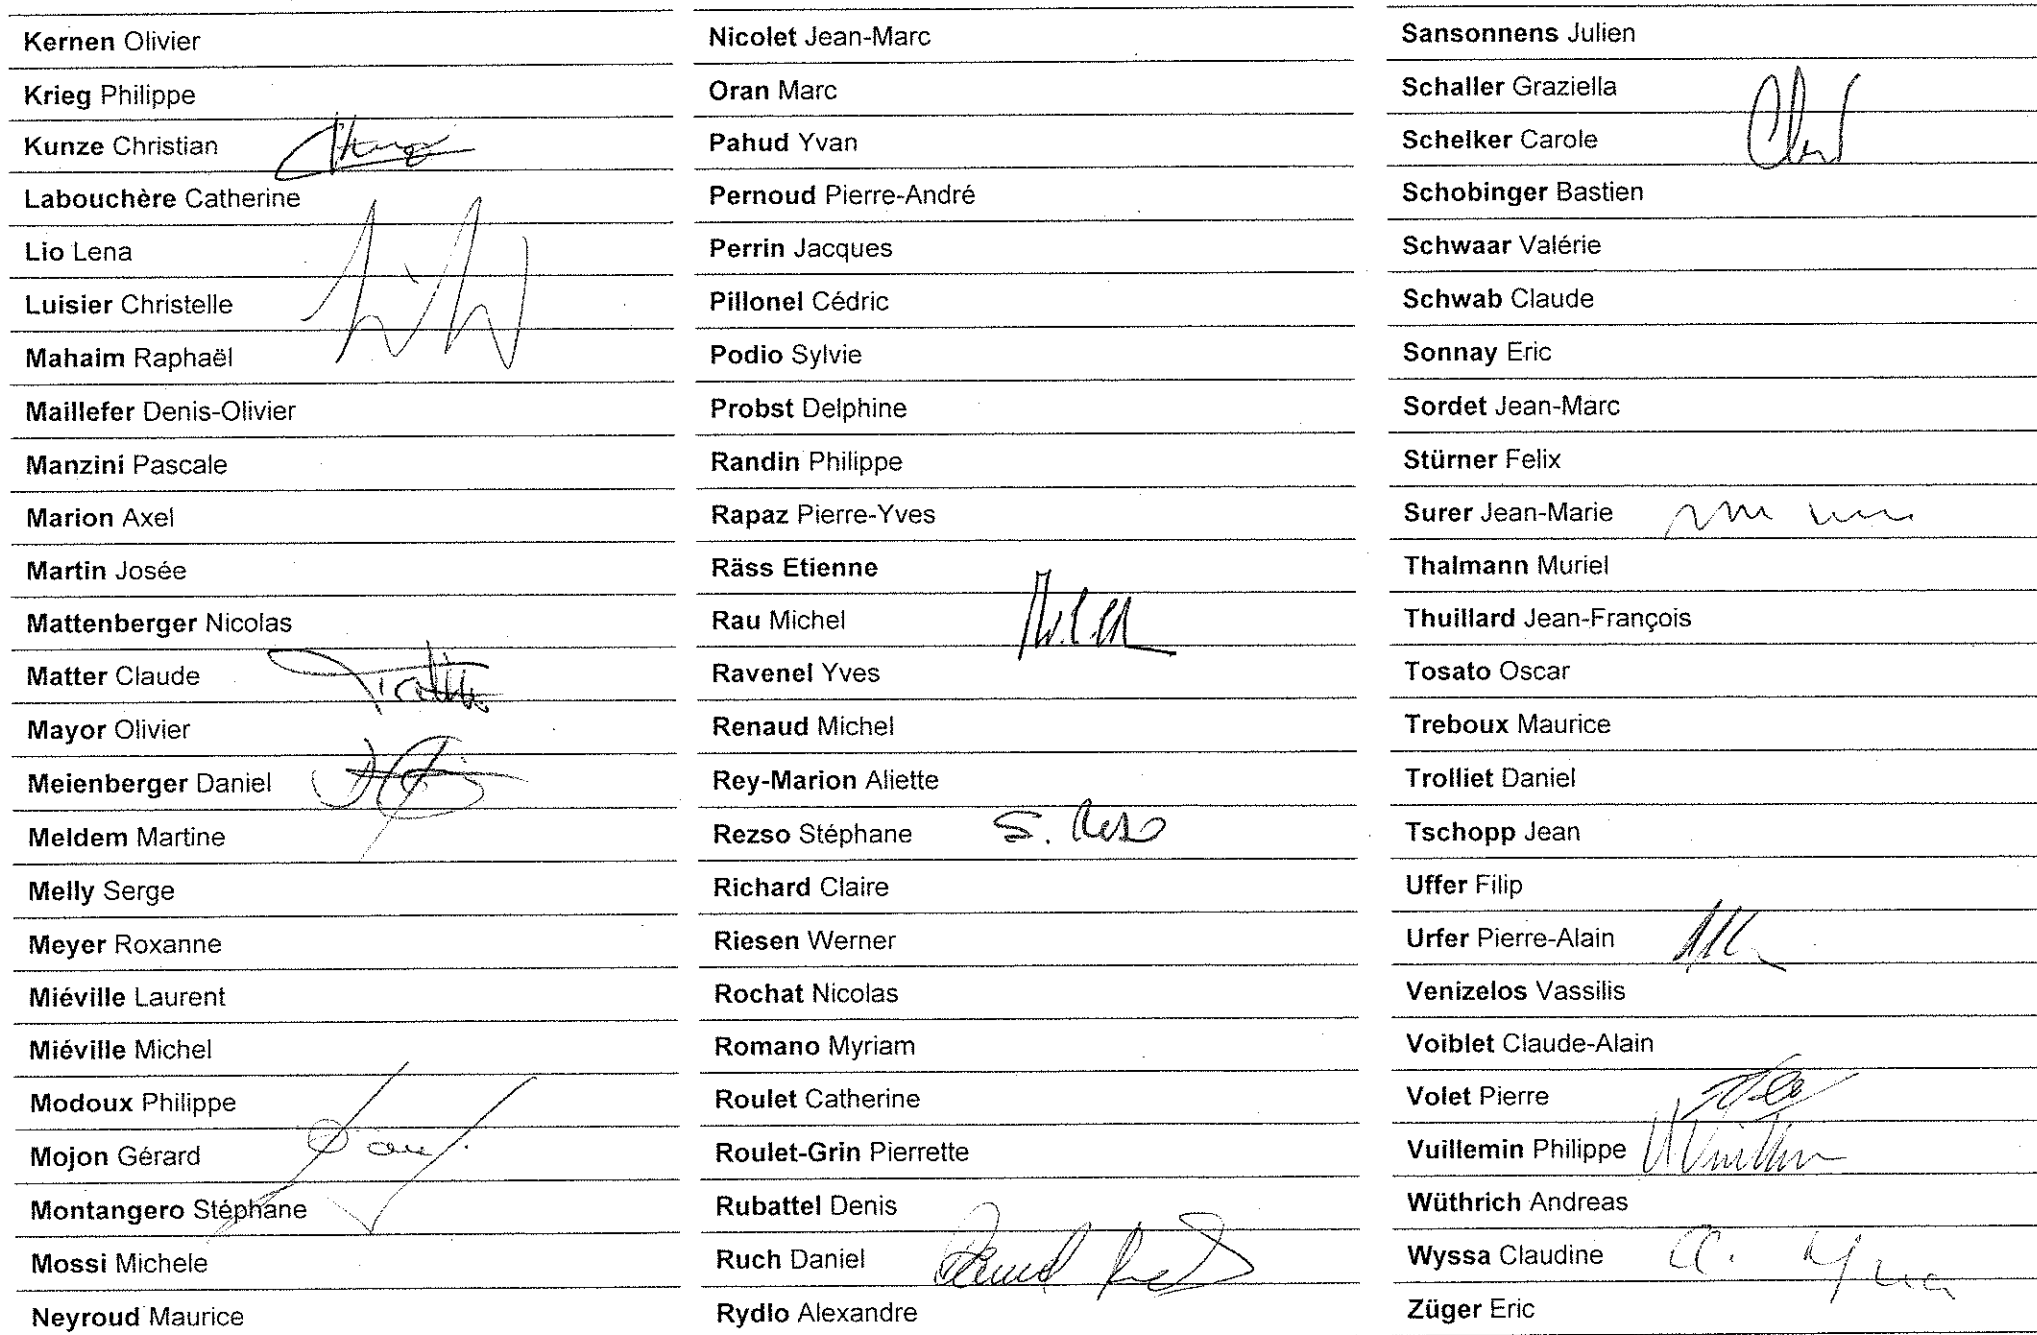 Kernen Olivier
Krieg Philippe
Kunze Christian
Labouchère Catherine
Lio Lena
Luisier Christelle
Mahaim Raphaël
Maillefer Denis-Olivier
Manzini Pascale
Marion Axel
Martin Josée
Mattenberger Nicolas
Matter Claude
Mayor Olivier
Meienberger Daniel
Meldem Martine
Melly Serge
Meyer Roxanne
Miéville Laurent
Miéville Michel
Modoux Philippe
Mojon Gérard
Montangero Stéphane
Mossi Michele
Neyroud Maurice
Nicolet Jean-Marc
Oran Marc
Pahud Yvan
Pernoud Pierre-André
Perrin Jacques
Pillonel Cédric
Podio Sylvie
Probst Delphine
Randin Philippe
Rapaz Pierre-Yves
Räss Etienne
Rau Michel
Ravenel Yves
Renaud Michel
Rey-Marion Aliette
Rezso Stéphane S. Rezso
Richard Claire
Riesen Werner
Rochat Nicolas
Romano Myriam
Roulet Catherine
Roulet-Grin Pierrette
Rubattel Denis
Ruch Daniel
Rydlo Alexandre
Sansonnens Julien
Schaller Graziella
Schelker Carole
Schobinger Bastien
Schwaar Valérie
Schwab Claude
Sonnay Eric
Sordet Jean-Marc
Stürner Felix
Surer Jean-Marie
Thalmann Muriel
Thuillard Jean-François
Tosato Oscar
Treboux Maurice
Trolliet Daniel
Tschopp Jean
Uffer Filip
Urfer Pierre-Alain
Venizelos Vassilis
Voiblet Claude-Alain
Volet Pierre
Vuillemin Philippe
Wüthrich Andreas
Wyssa Claudine
Züger Eric